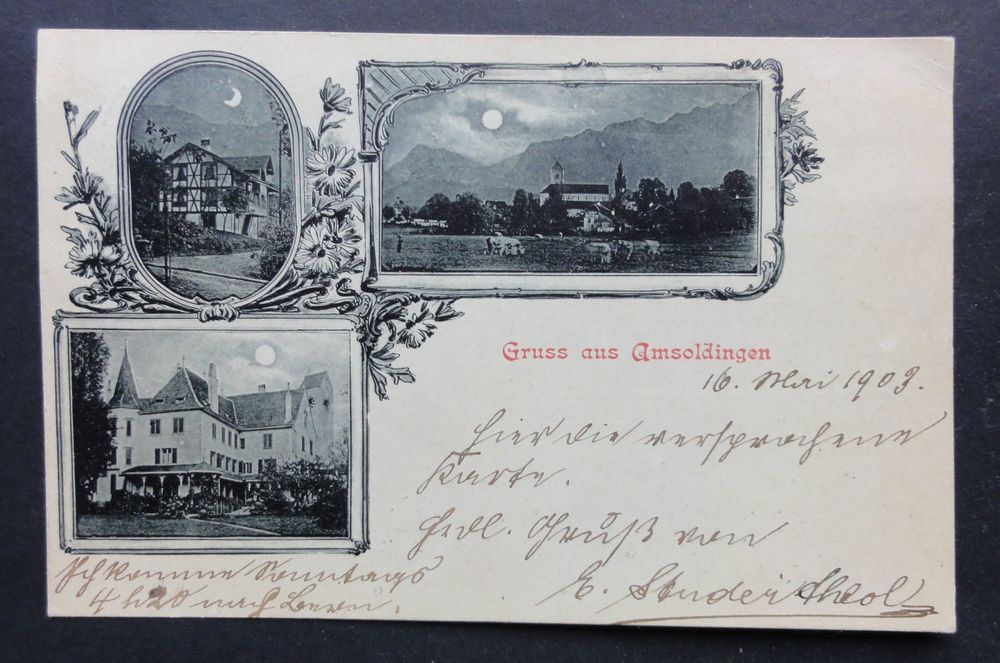 Gruss aus Amsoldingen
16. Mai 1903.
Hier die versprochene
Karte.
Frdl. Gruß von
E. Studer theol
Ich komme Sonntags
4 h 20 nach Bern.